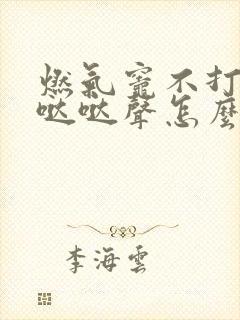 燃氣竈不打
哒哒聲怎麼
李海雲